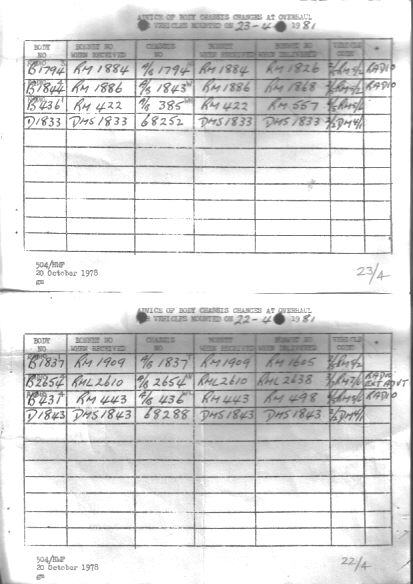 ADVICE OF BODY CHASSIS CHANGES AT OVERHAUL
VEHICLES MOUNTED ON 23-4 1981
BODY NO BONNET NO WHEN RECEIVED CHASSIS NO BONNET WHEN RECEIVED BONNET NO WHEN DELIVERED VEHICLE CODE *
B1794 RM 1884 A/S 1794 RM 1884 RM 1826 2/5 RM 5/2 RADIO
B1844 RM 1886 A/S 1843 RM 1886 RM 1868 2/5 RM 5/2 RADIO
B436 RM 422 A/S 385 RM 422 RM 557
D1833 DMS 1833 68252 DMS 1833 DMS 1833
504/EMP
20 October 1978
gm
23/4
ADVICE OF BODY CHASSIS CHANGES AT OVERHAUL
VEHICLES MOUNTED ON 22-4 1981
BODY NO BONNET NO WHEN RECEIVED CHASSIS NO BONNET WHEN RECEIVED BONNET NO WHEN DELIVERED VEHICLE CODE *
B1837 RM 1909 A/S 1837 RM 1909 RM 1605
B2654 RML 2610 A/S 2654 RML 2610 RML 2638 RADIO
B431 RM 443 A/S 436 RM 443 RM 498 RADIO
D1843 DMS 1843 68288 DMS 1843 DMS 1843
504/EMP
20 October 1978
gm
22/4